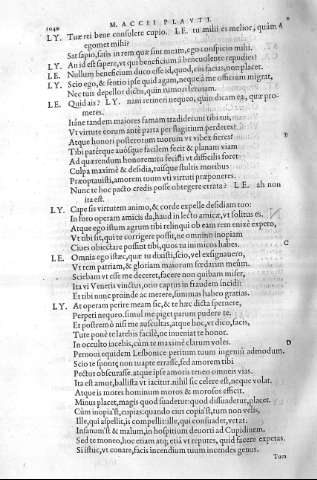 1040
M. ACCII PLAVTI
LY. Tuæ rei bene consulere cupio. LE. tu mihi es melior, quàm
egomet mihi?
Sat sapio, satis in rem quæ sint meam, ego conspicio mihi.
LY. An id est sapere, vt qui beneficium à beneuolente repudies?
LE. Nullum beneficium duco esse id, quod, cui facias, non placet.
LY. Scio ego, & sentio ipse quid agam, neque à me officium migrat,
Nec tuis depellor dictis, quin rumori seruiam.
LE. Quid ais? LY. nam retineri nequeo, quin dicam ea, quæ pro-
meres.
Itáne tandem maiores famam tradiderunt tibi tui,
Vt virtute eorum antè parta per flagitium perderes?
B
Atque honori posterorum tuorum vt vibex fieres?
Tibi paterque auúsque facilem fecit & planam viam
Ad quærendum honorem: tu fecisti vt difficilis foret
Culpa maximè & desidia, tuisque stultis moribus
Præoptauisti, amorem tuum vti virtuti præponeres.
Nunc te hoc pacto credis posse obtegere errata? LE. ah non
ita est.
LY. Cape sis virtutem animo, & corde expelle desidiam tuo:
In foro operam amicis da, haud in lecto amicæ, vt solitus es,
Atque ego istum agrum tibi relinqui ob eam rem enixè expeto,
Vt tibi sit, qui te corrigere possis, ne omnino inopiam
Ciues obiectare possint tibi, quos tu inimicos habes.
C
LE. Omnia ego istæc, quæ tu dixisti, scio, vel exsignauero,
Vt rem patriam, & gloriam maiorum fœdarim meûm.
Scibam vt esse me deceret, facere non quibam miser,
Ita vi Veneris vinctus, otio captus in fraudem incidi:
Et tibi nunc proinde ac merere, summas habeo gratias.
LY. At operam perire meam sic, & te hæc dicta spernere,
Perpeti nequeo. simul me piget parum pudere te.
Et postremò nisi me auscultas, atque hoc, vt dico, facis,
Tute ponè te latebis facilè, ne inueniat te honor:
In occulto iacebis, cùm te maximè clarum voles.
D
Pernoui equidem Lesbonice peritum tuum ingenium admodum.
Scio te sponte non tuapte errasse, sed amorem tibi
Pectus obscurasse. atque ipse amoris teneo omneis vias.
Ita est amor, ballista vt iacitur. nihil sic celere est, neque volat.
Atque is mores hominum moros & morosos efficit.
Minus placet, magis quod suadetur: quod dissuadetur, placet.
Cùm inopia'st, cupias: quando eius copia'st, tum non velis,
Ille, qui aspellit, is compellit: ille, qui consuadet, vetat.
Insanum'st & malum, in hospitium deuorti ad Cupidinem.
Sed te moneo, hoc etiam atque etiam vt reputes, quid facere expetas.
Si istuc, vt conare, facis incendium tuum incendes genus.
Tum